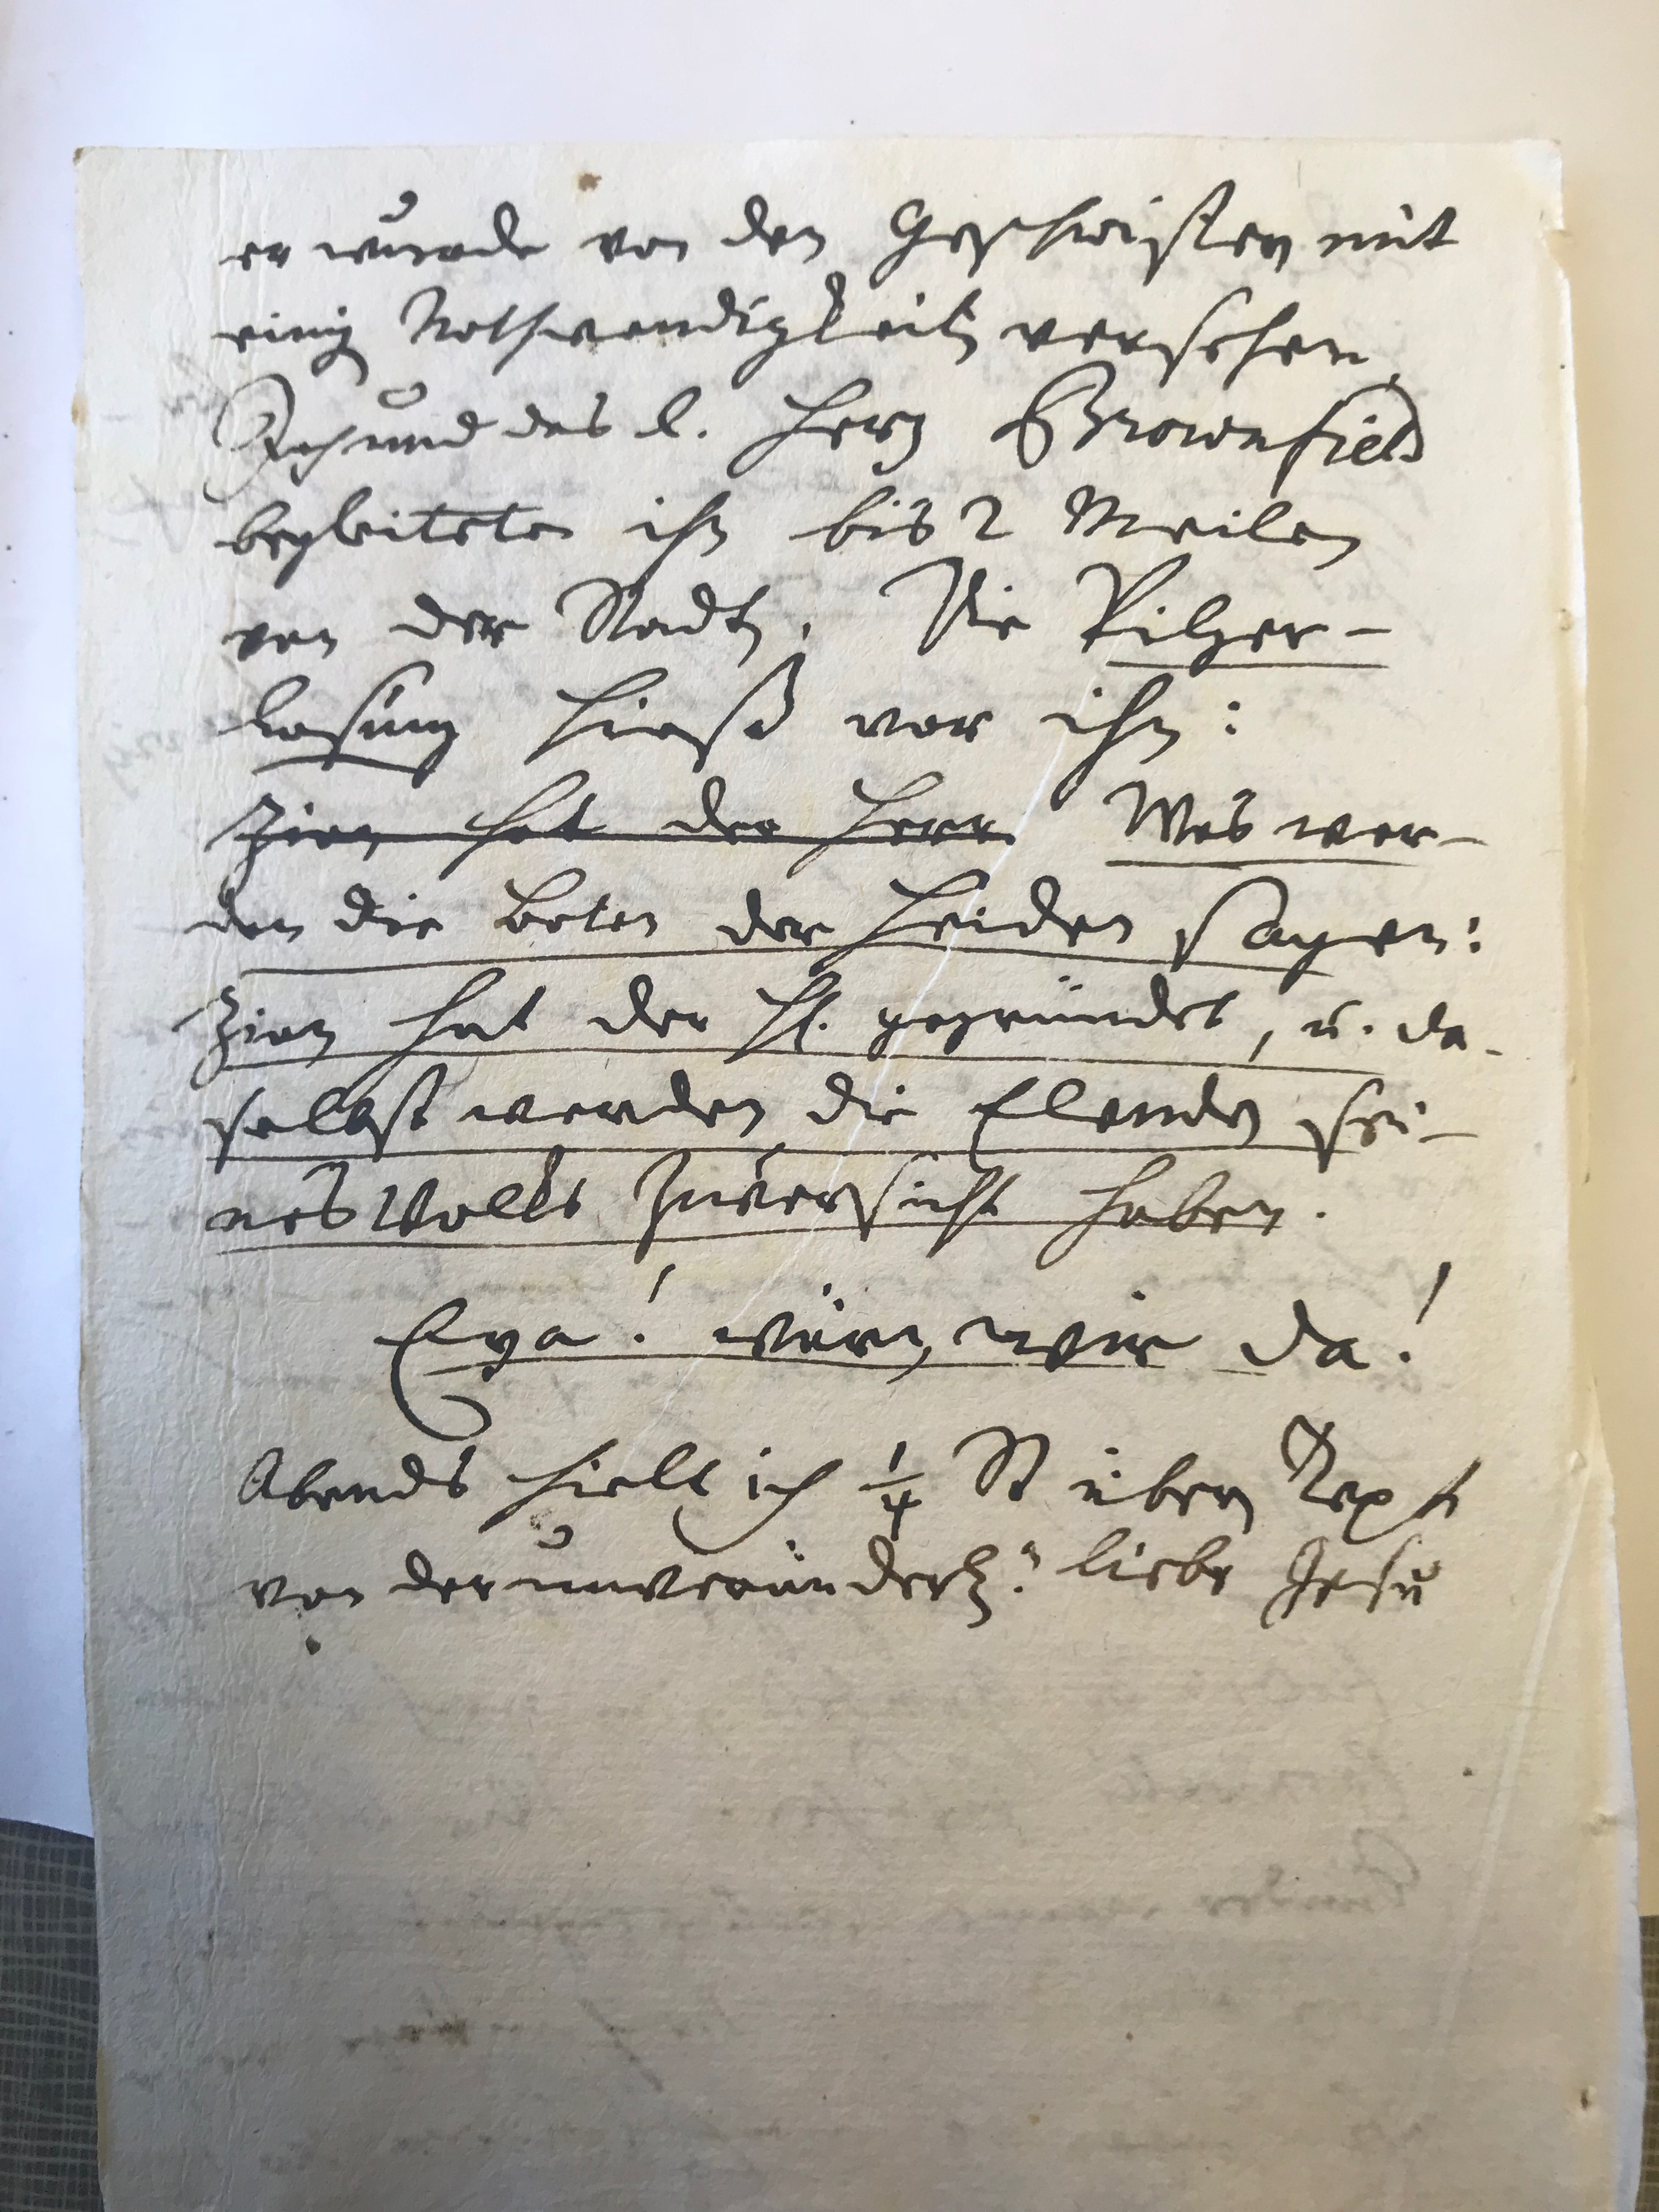 er wurde von den Geschwistern mit
einig Nothwendigkeitn versehen,
Ich und das l. Herz Brownfield
begleiteten ihn bis 2 Meilen
von der Stadt. Die Pilger-
losung hieß vor ihn:
Zion hat der Herr Was wer-
den die Boten der Heiden sagen:
Zion hat der H. gegründet, u. da-
selbst werden die Elenden sei-
nes Volks Zuversicht haben.
Eya! wärn wir da!
Abends hielt ich 1/4 St übern Text
von der unveränderl. liebe Jesu